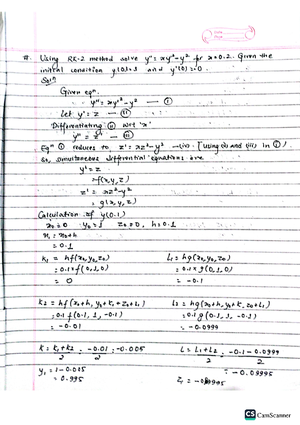 Using RK-2 method solve y" = xy'² - y² for x = 0.2. Given the
initial condition y(0) = 1 and y'(0) = 0.
Solⁿ
Given eqⁿ.
y" = xy'² - y² — (i)
Let y' = z — (ii)
Differentiating (ii) w.r.t 'x'
y" = z' — (iii)
Eqⁿ (i) reduces to z' = xz² - y² —(iv) [using (ii) and (iii) in (i)]
So, simultaneous differential equations are
y' = z
= f(x,y,z)
z' = xz² - y²
= g(x,y,z)
Calculation of y(0.1)
x₀ = 0 y₀ = 1 z₀ = 0, h = 0.1
x₁ = x₀+h
= 0.1
k₁ = hf(x₀,y₀,z₀) l₁ = hg(x₀,y₀,z₀)
= 0.1 × f(0,1,0) = 0.1 × g(0,1,0)
= 0 = -0.1
k₂ = hf(x₀+h, y₀+k₁, z₀+l₁) l₂ = hg(x₀+h, y₀+k, z₀+l₁)
= 0.1 f(0.1, 1, -0.1) = 0.1 g(0.1, 1, -0.1)
= -0.01 = -0.0999
k = k₁+k₂/2 = -0.01/2 = -0.005 l = l₁+l₂/2 = -0.1-0.0999/2
y₁ = 1-0.005 = -0.09995
= 0.995 z₁ = -0.09995
CS CamScanner